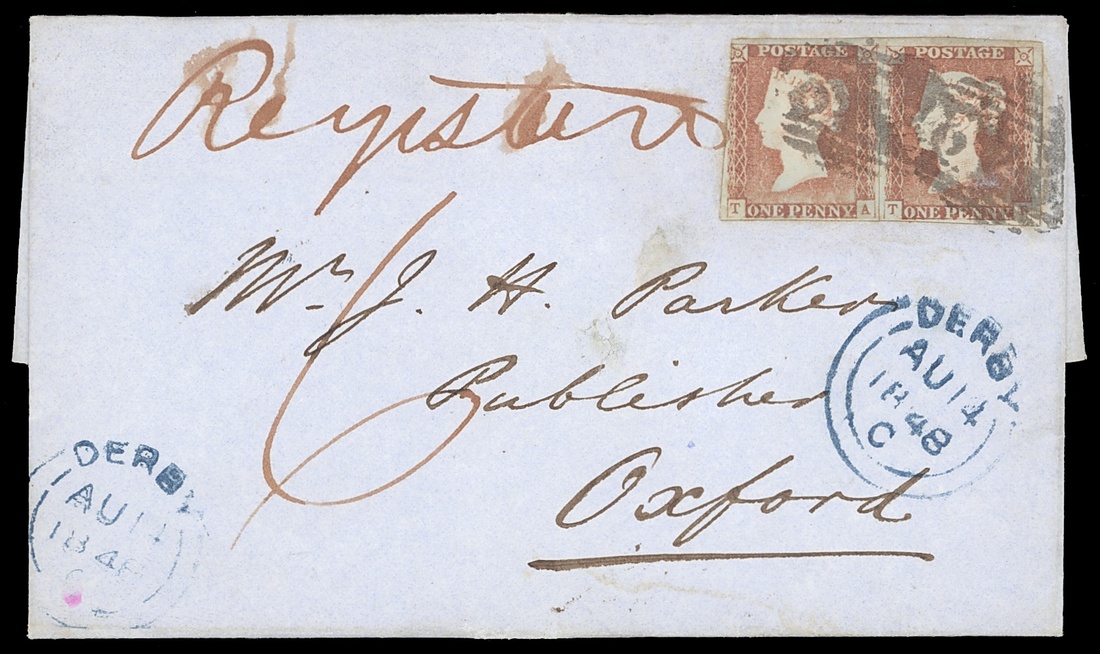 Registered
POSTAGE POSTAGE
T ONE PENNY A T ONE PENNY
6
Mr. J. H. Parker
Publisher
Oxford
DERBY
AU 14
1848
C
DERBY
AU 14
1848